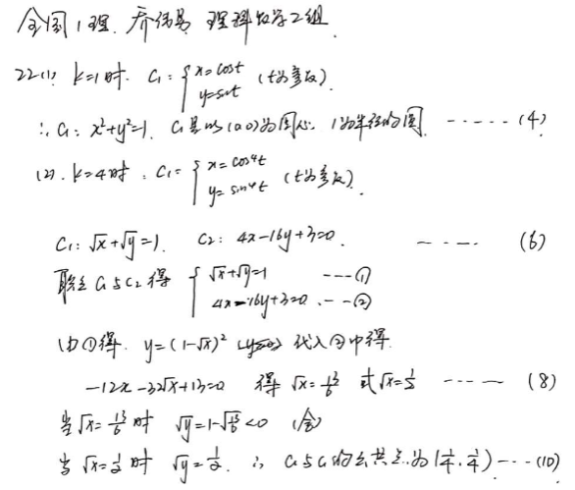 全国1理. 乔伟男 理科数学2组.
22.(1) k=1时. C₁: { x=cost y=sint (t为参数).
∴ C₁: x²+y²=1. C₁是以(0,0)为圆心. 1为半径的圆. ······ (4)
(2). k=4时, C₁: { x=cos⁴t y=sin⁴t (t为参数).
C₁: √x+√y=1. C₂: 4x-16y+3=0. ---- (6)
联立C₁与C₂得 { √x+√y=1 ---① 4x-16y+3=0 ---②
由①得. y=(1-√x)² 代入②中得.
-12x-32√x+13=0 得 √x=13/6 或√x=1/2 ---- (8)
当√x=13/6时 √y=1-√13/6<0 (舍)
当√x=1/2时 √y=1/2. ∴ C₁与C₂的公共点为(1/4,1/4)---(10)